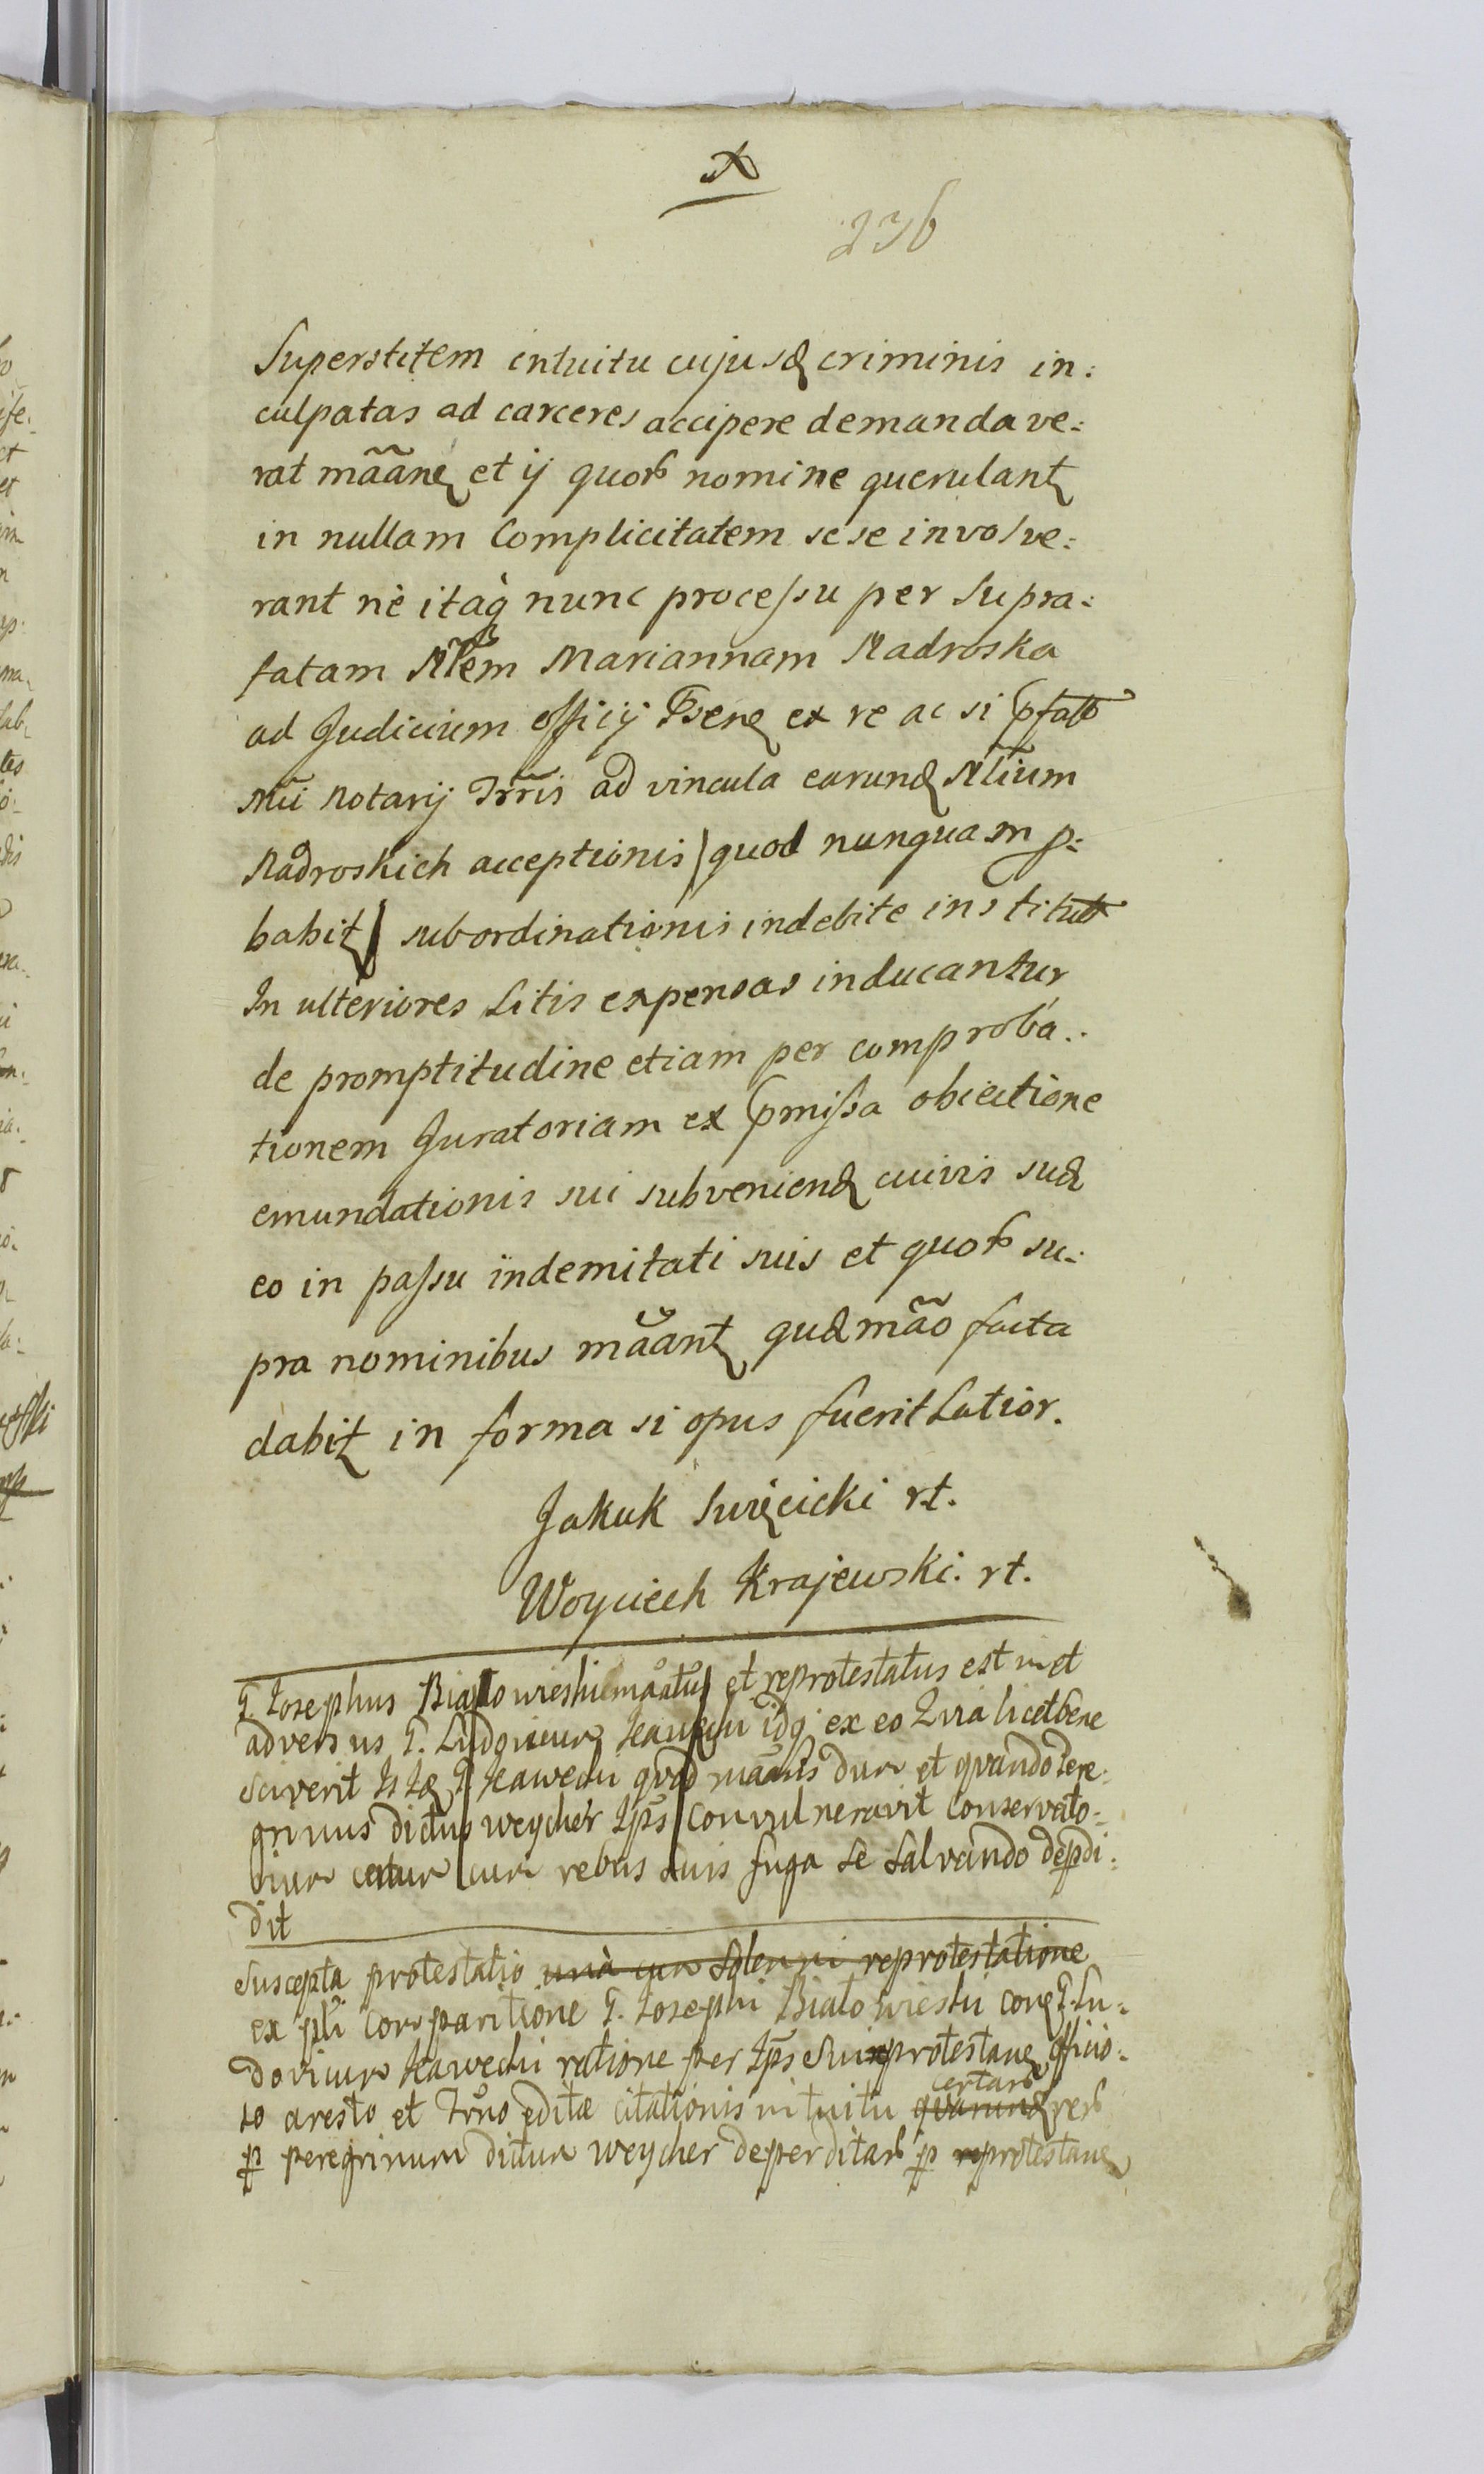 236
Superstitem intuitu cujusq criminis in:
culpatas ad carceres accipere demandave:
rat mãane et ij quorb nomine querulant
in nullam Complicitatem sese involve:
rant nè itaq nunc processu per supra:
fatam Nlem Mariannam Nadroska
ad Judicium officij ex re ac si pfato
Mci Notarij Trris ad vincula earund Nlium
Nadroskich acceptionis quod nunquam p:
babit subordinationis indebite institut
In ulteriores Litis expensas inducantur
de promptitudine etiam per comproba:
tionem Juratoriam ex pmissa obiectione
emundationis sui subveniend cuivis sud
eo in passu indemitati suis et quorb su:
pra nominibus mãant qud mão facta
dabit in forma si opus fuerit Latior.
Jakuk Swięcicki rt.
Woyciech Krajewski. rt.
G. Josephus Białowieski et reprotestatus est
adversus G. idq ex eo licet bene
sciverit quod et quando Pere:
grinus dictus weycher Jps convulneravit conservato:
cum rebus suis fuga se salvando depdi:
dit
Suscepta protestatio unà cum solenni reprotestatione
ex pti comparitione G. Josephi Białowieski G. Lu:
dovicum ratione per Jps reprotestane officio:
so aresto et editæ citationis intuitu quarund certarb rerb
p peregrinum dictum weycher deperditarb p reprotestane